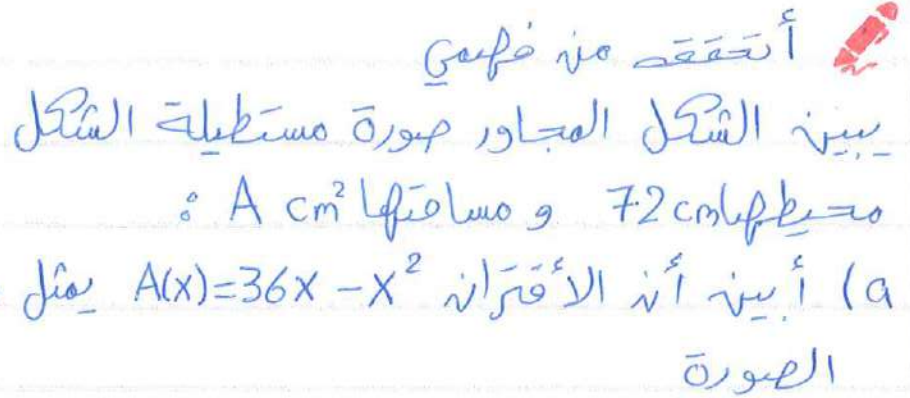 أتحقق من فهمي
يبين الشكل المجاور صورة مستطيلة الشكل
محيطها 72cm و مساحتها A cm² :
a) أبين أن الأقتران A(x)=36x-x² يمثل
الصورة